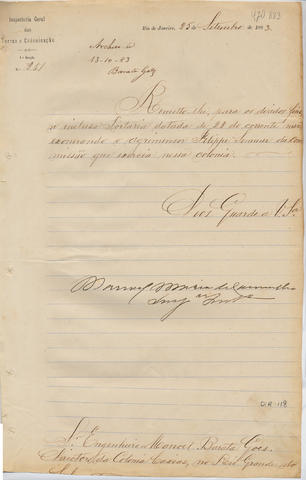 Inspectoria Geral
das
Terras e Colonisação
Nº 241
Rio de Janeiro, 25 de Setembro de 1883.
470 883
Archive-se
13-10-83
Barata Góes
Remetto-lhe, para os devidos fins,
a inclusa Portaria datada de 22 do corrente
exonerando o agrimensor Filippe da Com-
missão que exercia nessa colonia.
Deos Guarde a V. Sa
Manoel Maria de Carvalho
DIR-118
Sr. Engenheiro Manoel Barata Góes.
Director da Colonia Caxias, no Rio Grande do
Sul